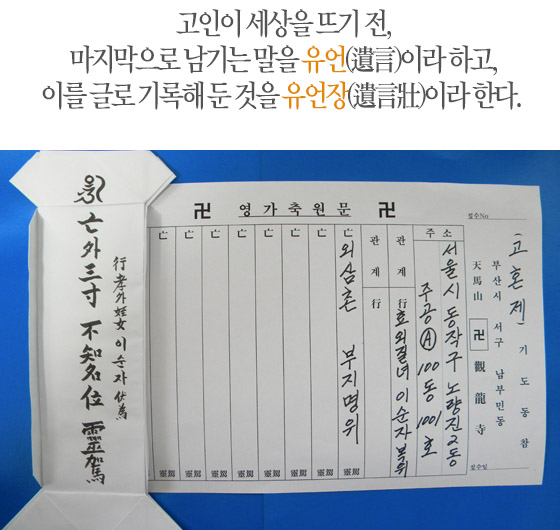 고인이 세상을 뜨기 전,
마지막으로 남기는 말을 유언(遺言)이라 하고,
이를 글로 기록해 둔 것을 유언장(遺言壯)이라 한다.
卍 영가축원문 卍
접수No
(고혼제) 기도동참
부산시 서구 남부민동
天馬山 卍 觀龍寺
접수일
주소
서울시 동작구 노량진2동
주공Ⓐ 100동 1001호
관계 行 효외질녀 이순자 복위
관계 行
亡 외삼촌 부지명위 靈駕
亡 靈駕
亡 靈駕
亡 靈駕
亡 靈駕
亡 靈駕
亡 靈駕
亡 靈駕
行孝外姪女 이순자 伏爲
亡外三寸 不知名位 靈駕